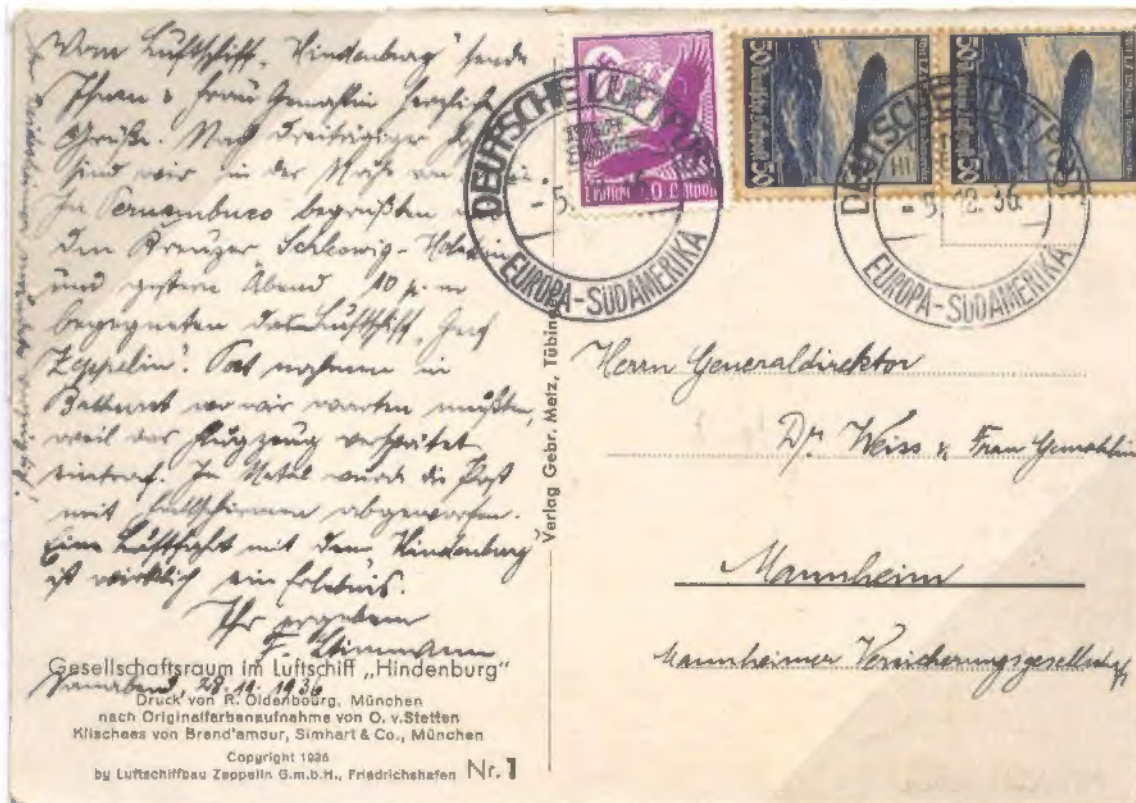 Vom Luftschiff „Hindenburg" sende
Ihnen & Frau Gemahlin herzliche
Grüße. Nach dreitägiger
sind wir in der Nähe von
In Pernambuco begrüßten wir
den Kreuzer Schleswig-Holstein
und gestern Abend 10 p. m
begegneten das Luftschiff „Graf
Zeppelin". Post nahmen in
Bathurst wo wir warten mußten,
weil das Flugzeug verspätet
eintraf. In Natal wurde die Post
mit Fallschirmen abgeworfen.
Eine Luftfahrt mit dem „Hindenburg"
ist wirklich ein Erlebnis.
Ihr ergebener
F.
Gesellschaftsraum im Luftschiff „Hindenburg"
28.11.1936
Druck von R. Oldenbourg, München
nach Originalfarbenaufnahme von O. v. Stetten
Klischees von Brend'amour, Simhart & Co., München
Copyright 1936
by Luftschiffbau Zeppelin G.m.b.H., Friedrichshafen Nr. 1
Verlag Gebr. Metz, Tübingen
DEUTSCHE LUFTPOST
- 5.
EUROPA-SÜDAMERIKA
50
50
DEUTSCHE LUFTPOST
- 5. 12. 36.
EUROPA-SÜDAMERIKA
Herrn Generaldirektor
Dr. Weiss & Frau Gemahlin
Mannheim
Mannheimer Versicherungsgesellschaft